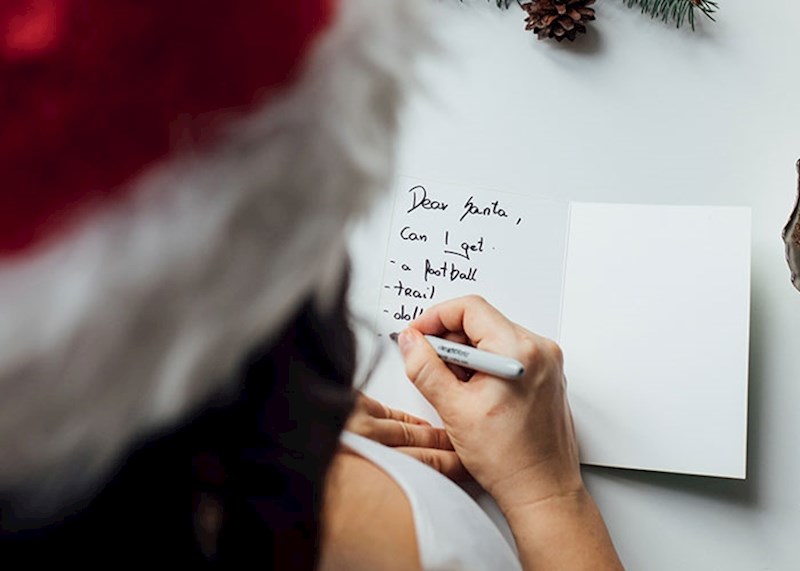 Dear Santa,
Can I get.
- a football
- trail
- doll
-